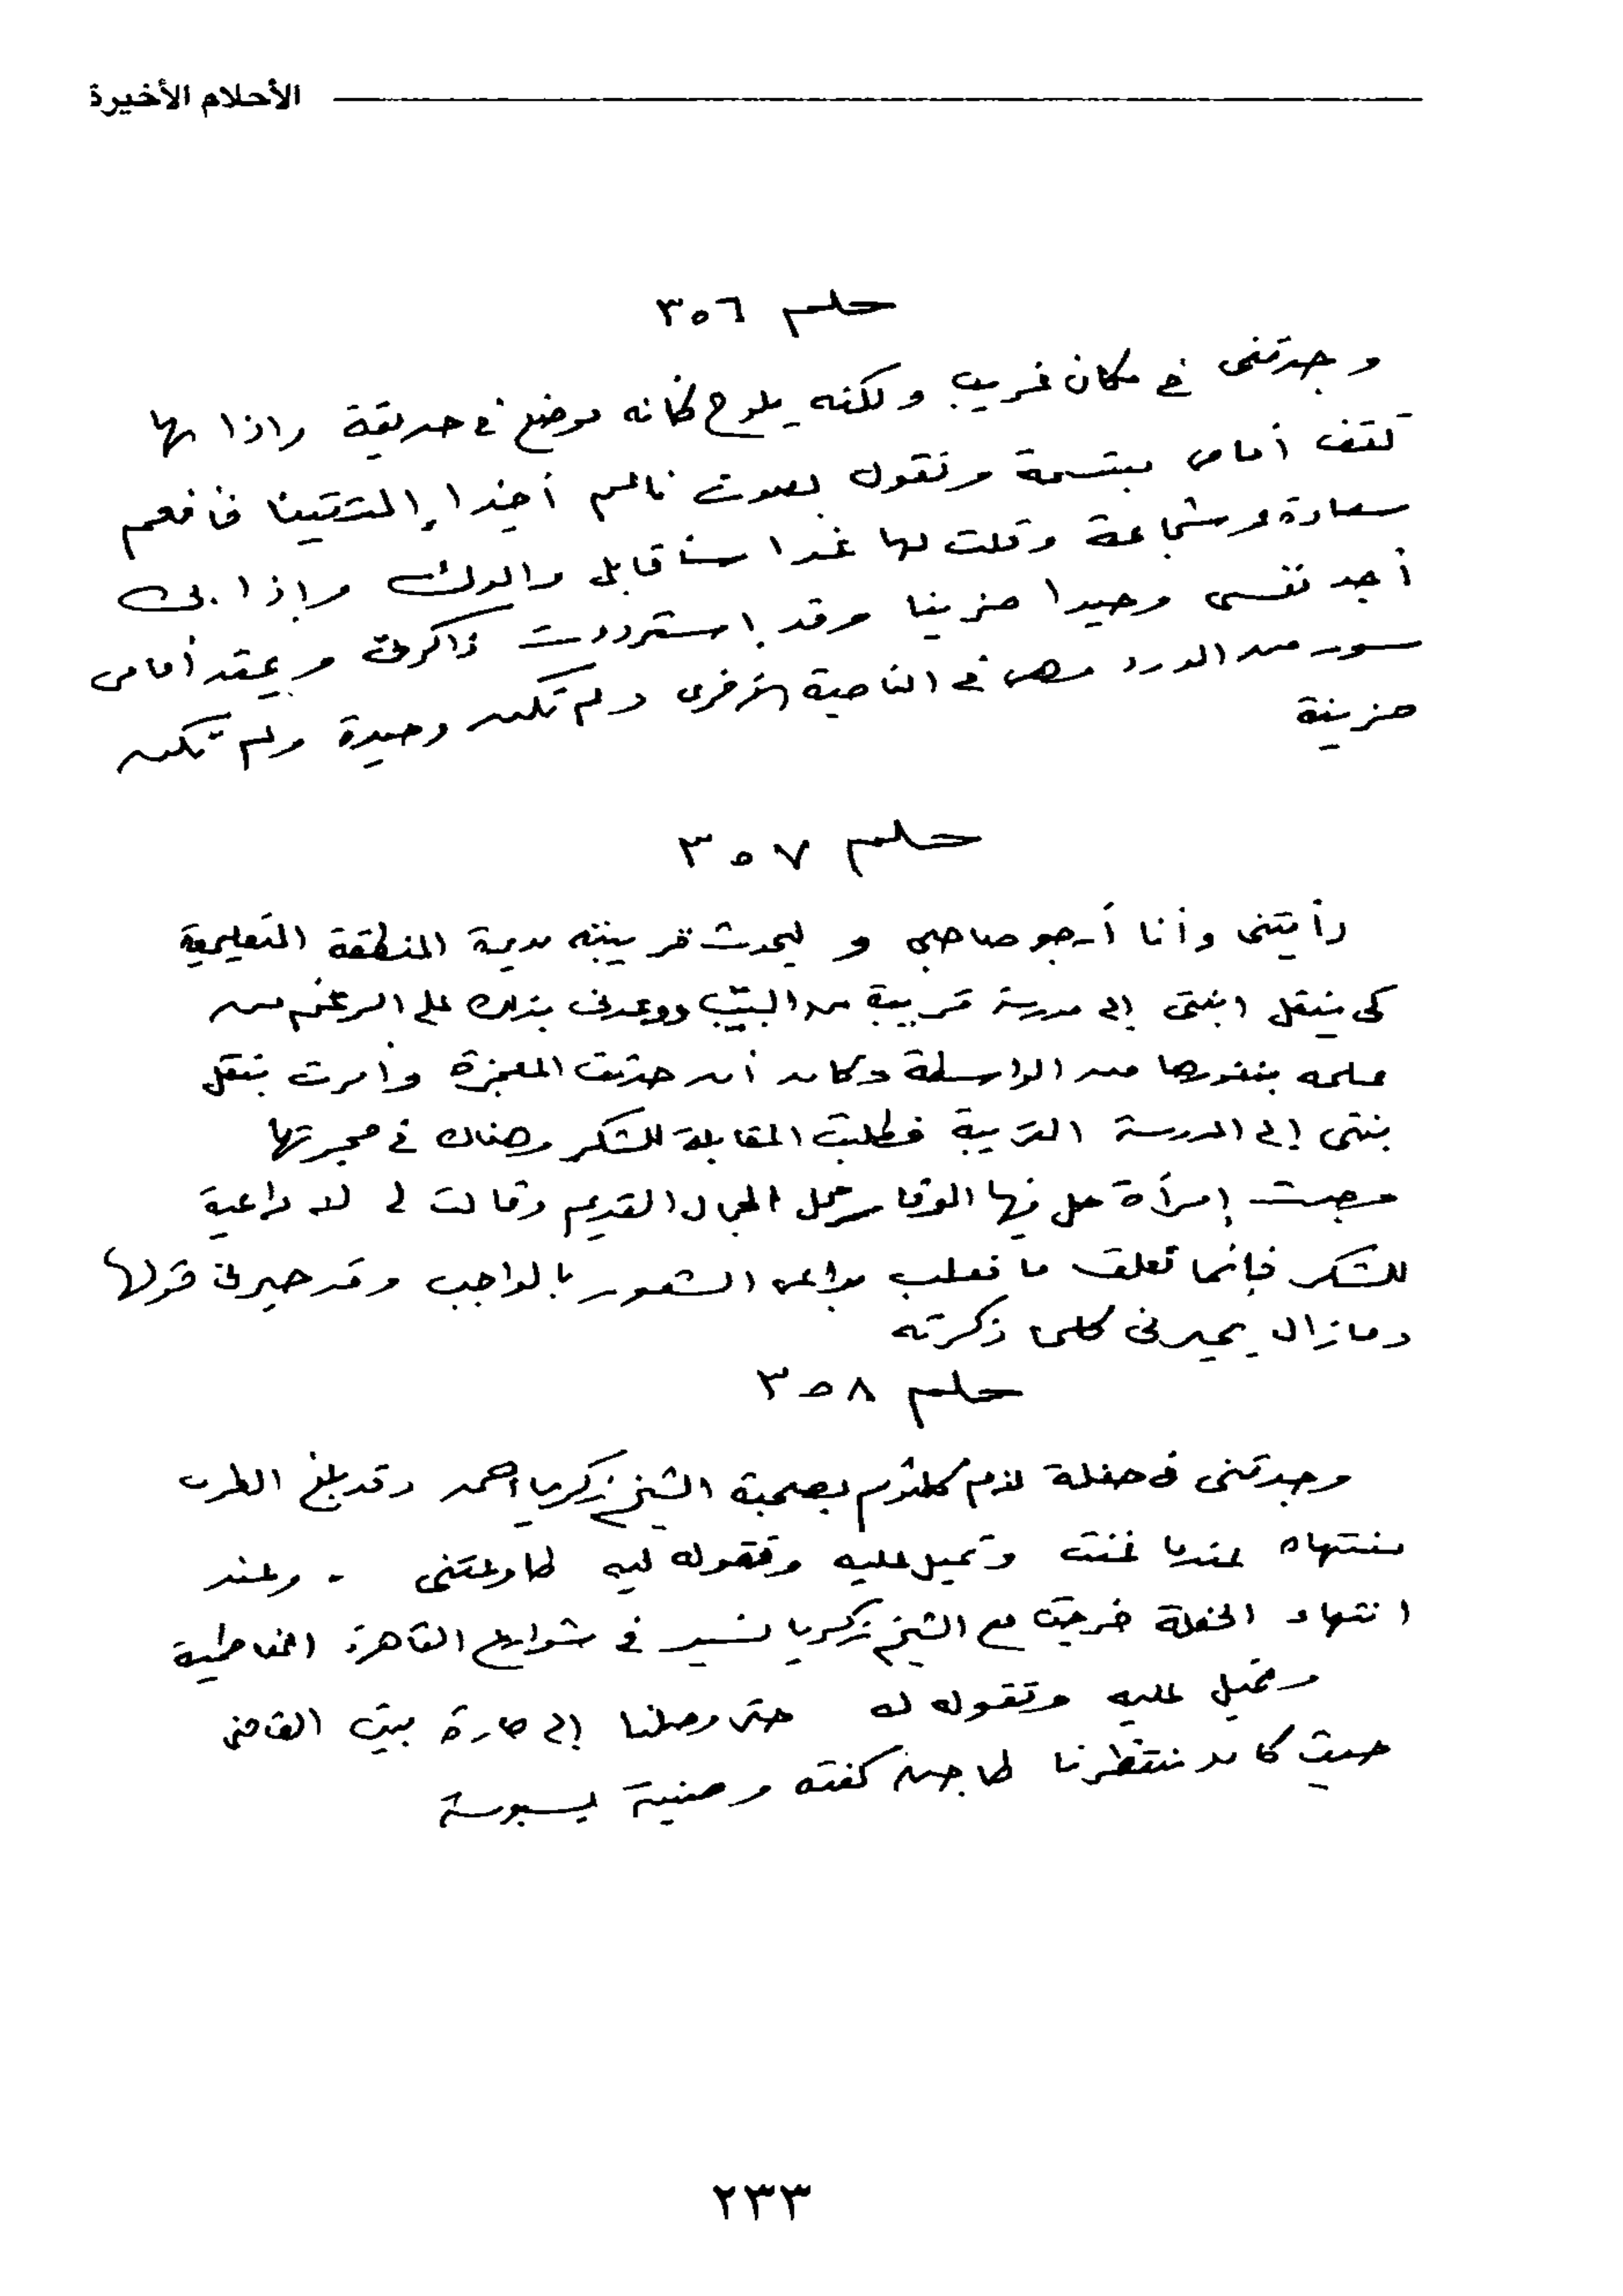 الأحلام الأخيرة
حلم ٣٥٦
وجدتنى فى مكان غريب ولكنه يلوح كأنه موضع فى حديقة وإذا بها
تقف أمامى مبتسمة وتقول بصوت ناعم أخيرا إلتقينا فأفعم
سعادة وشجاعة وقلت لها غدا سأقابل والدك وإذا بى
أجد نفسى وحيدا حزينا وقد إستردت ذاكرتى ويمتد أمامى
سور من الورد وهى فى الناحية الأخرى ولم تكن وحيدة ولم تكن
حزينة
حلم ٣٥٧
رأيتنى وأنا أرجو صاحبى و ليحدث قريبته مديرة المنطقة التعليمية
كى ينقل ابنتى إلى مدرسة قريبة من البيت ووعدنى بذلك على الرغم من
علمه بنفورها من الواسطة وكان أن حدثت المعجزة وأمرت بنقل
بنتى إلى المدرسة القريبة فطلبت المقابلة للشكر وهناك فى حجرتها
وجدت إمرأة حل فيها الوقار محل الجمال القديم وقالت لى لا داعية
للشكر فإنما تعلق ما فعلت بداعى الشعور بالواجب وقد حيرنى قولها
ومازال يحيرنى كلما ذكرته
حلم ٣٥٨
وجدتنى فى حفلة لأم كلثوم بصحبة الشيخ زكريا أحمد وقد بلغ الطرب
منتهاه عندما غنت وتميل عليه وتقوله ليه طاوعتنى . وعند
انتهاء الحفلة خرجت مع الشيخ زكريا نسير فى شوارع القاهرة الفاطمية
وتميل عليه وتقوله له حتى وصلنا إلى حارة بيت القاضى
حيث كان ننتظرنا طاجن كفته وصنية بسبوسة
٢٣٣